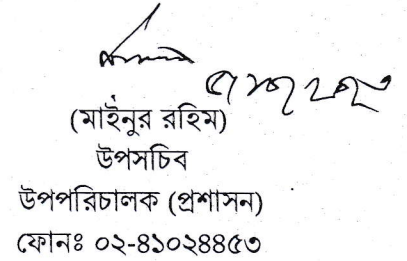 (মাইনুর রহিম)
উপসচিব
উপপরিচালক (প্রশাসন)
ফোনঃ ০২-৪১০২৪৪৫৩